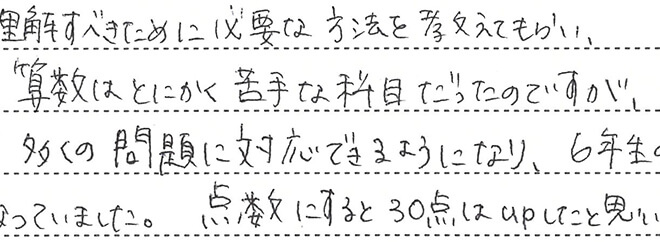 理解すべきために必要な方法を教えてもらい、
算数はとにかく苦手な科目だったのですが、
多くの問題に対応できるようになり、6年生の
なっていました。 点数にすると30点はupしたと思い